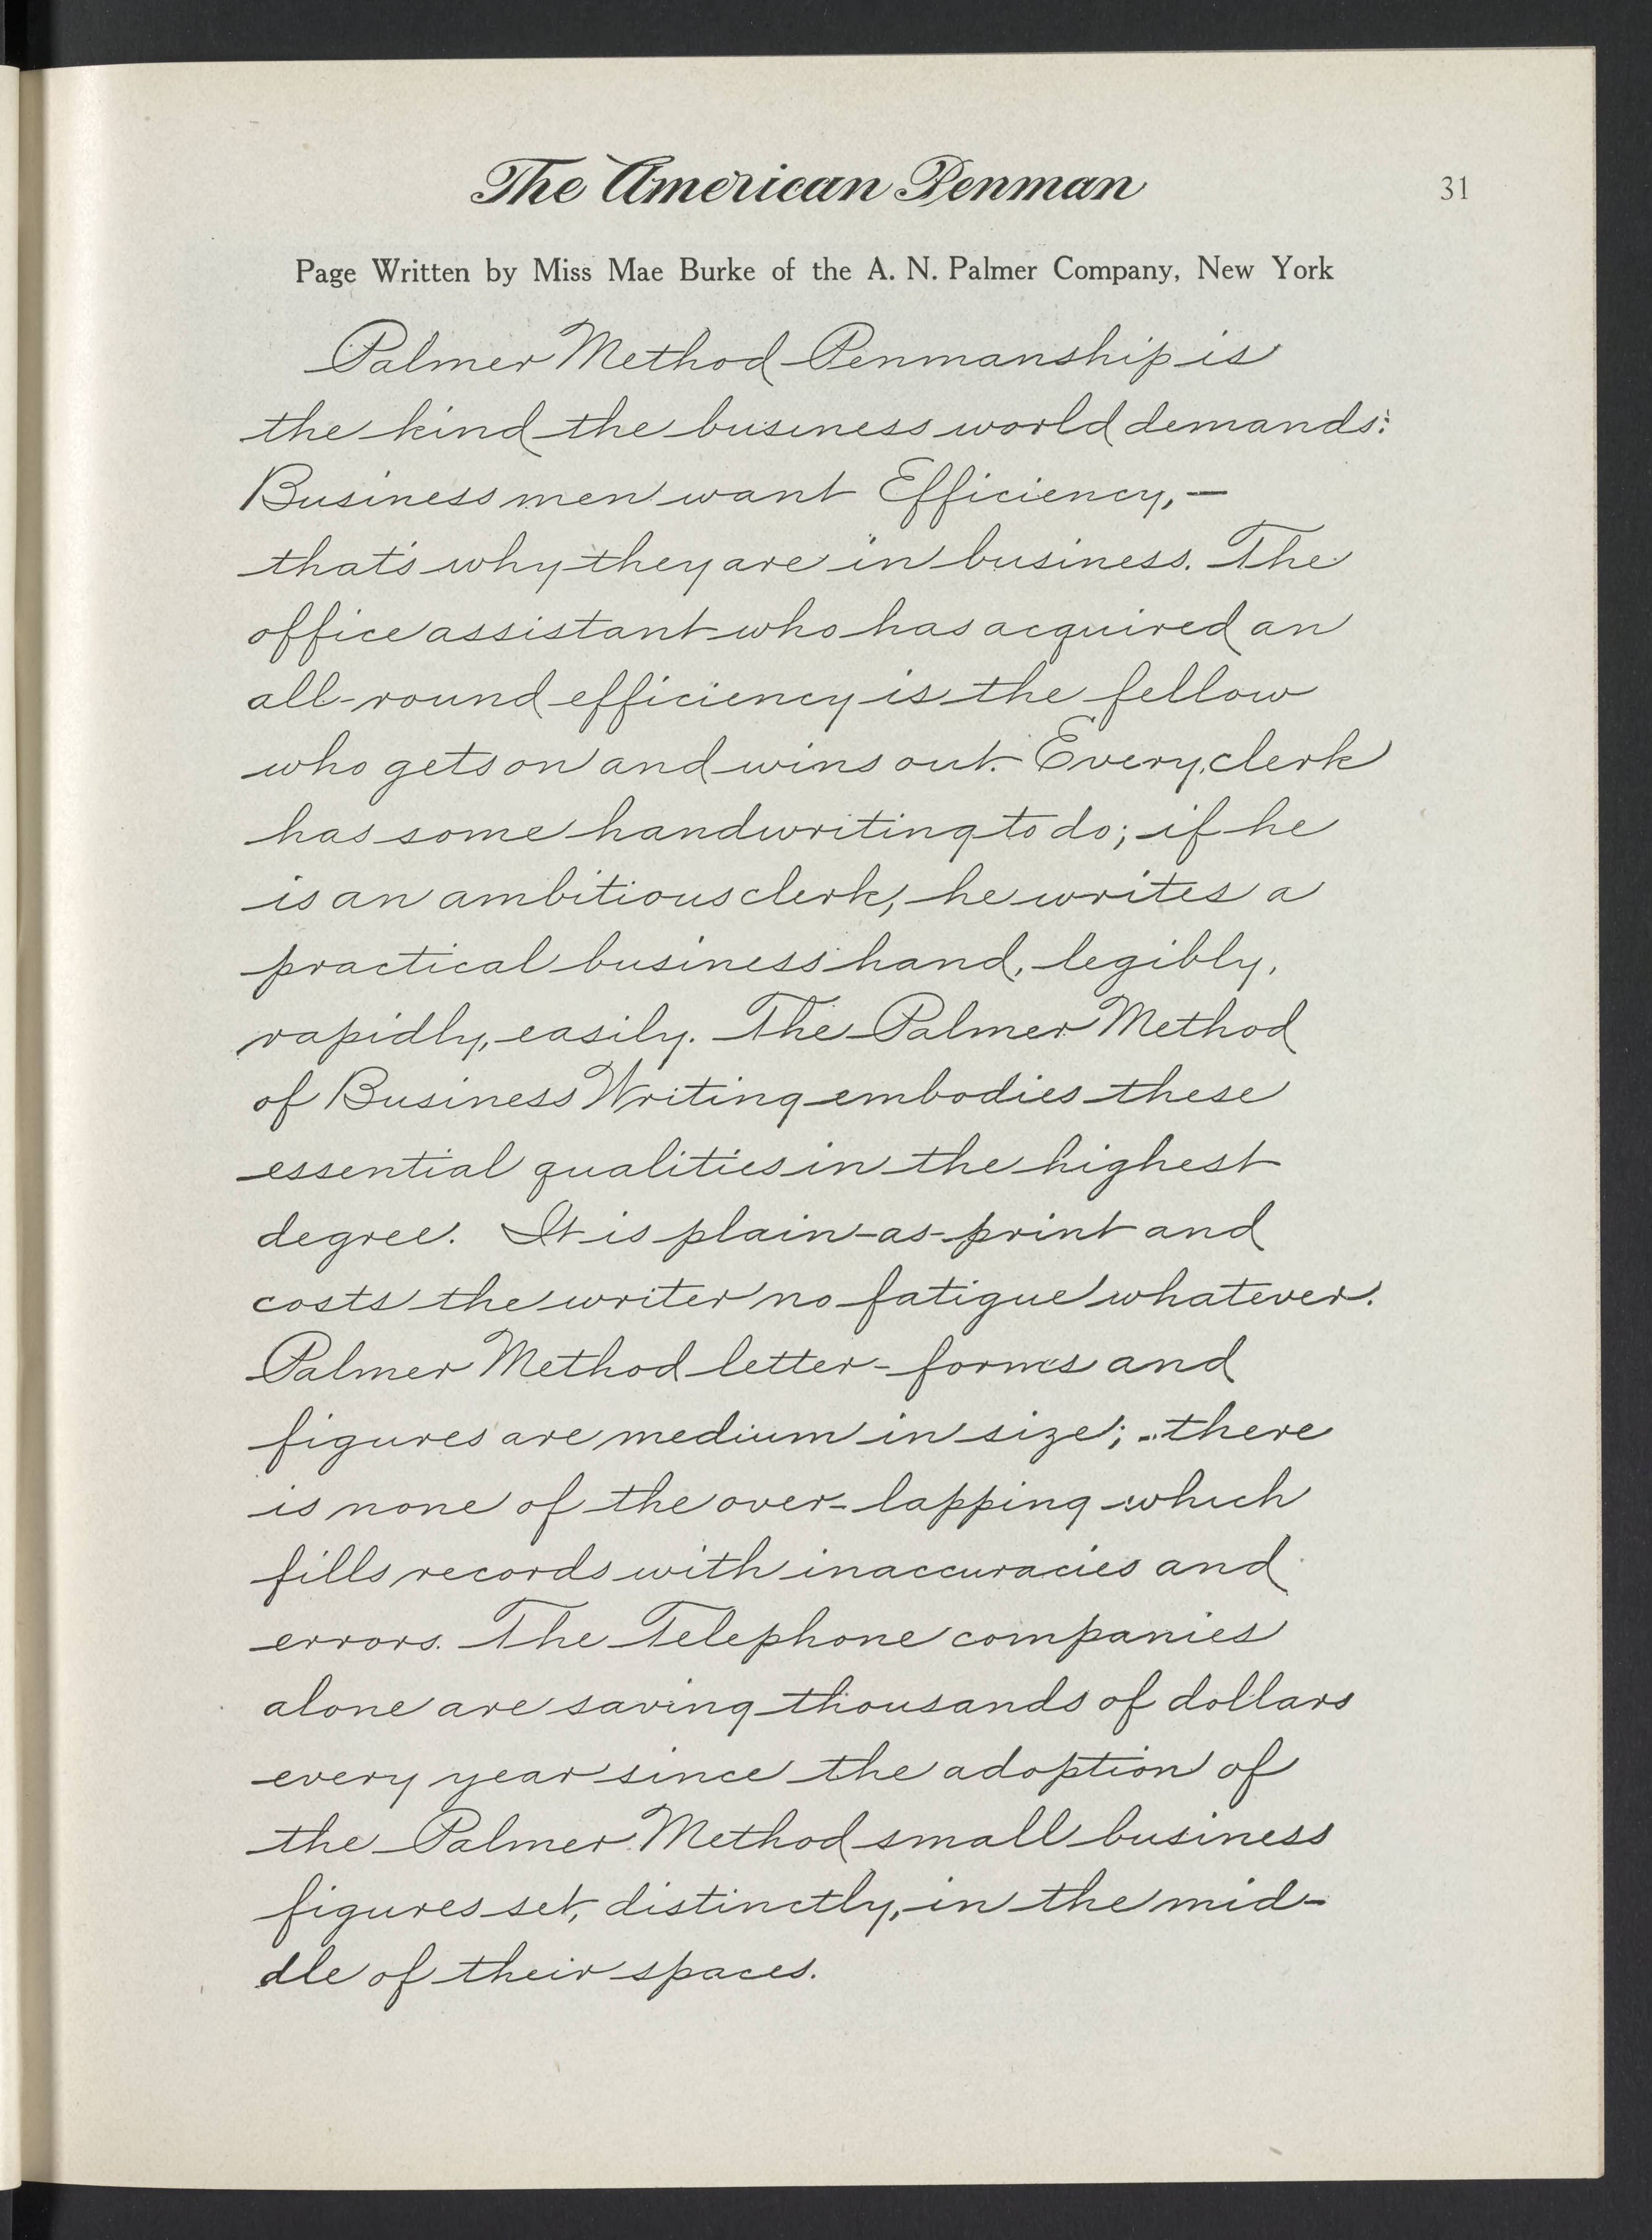 The American Penman
31
Page Written by Miss Mae Burke of the A. N. Palmer Company, New York
Palmer Method Penmanship is
the kind the business world demands:
Business men want Efficiency,—
that's why they are in business. The
office assistant who has acquired an
all-round efficiency is the fellow
who gets on and wins out. Every clerk
has some handwriting to do; if he
is an ambitious clerk, he writes a
practical business hand, legibly,
rapidly, easily. The Palmer Method
of Business Writing embodies these
essential qualities in the highest
degree. It is plain-as-print and
costs the writer no fatigue whatever.
Palmer Method letter-forms and
figures are medium in size; there
is none of the over-lapping which
fills records with inaccuracies and
errors. The Telephone companies
alone are saving thousands of dollars
every year since the adoption of
the Palmer Method small business
figures set, distinctly, in the mid-
dle of their spaces.